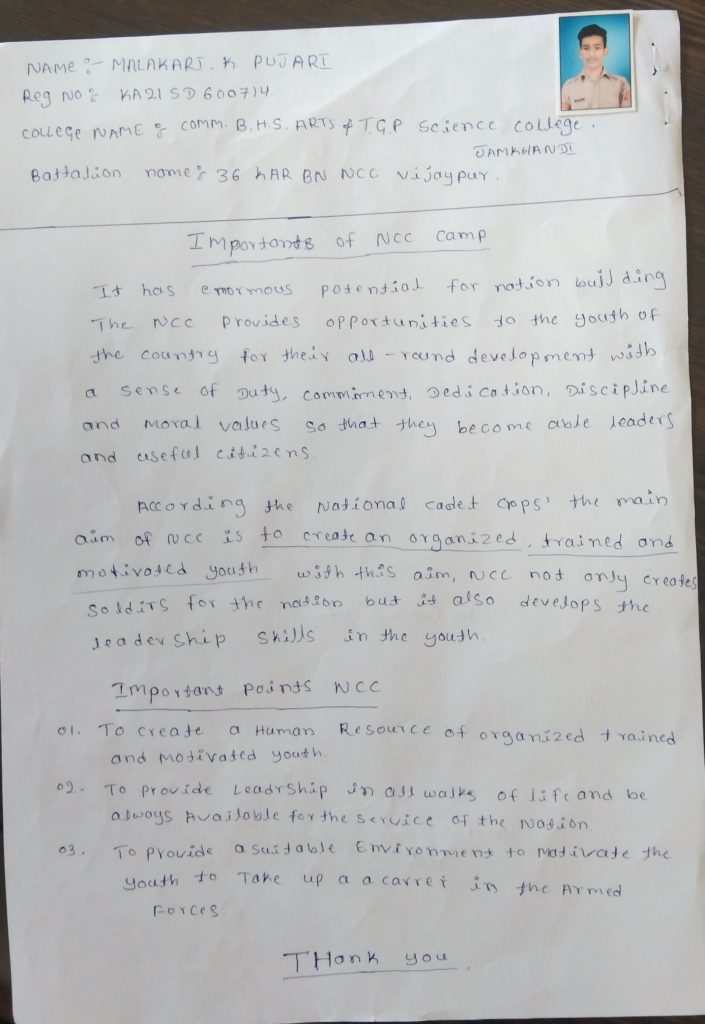 NAME :- MALAKARI. K PUJARI
Reg NO : KA21 SD 600714
COLLEGE NAME : COMM. B.H.S. ARTS & T.G.P Science college.
JAMKHANDI.
Battalion name : 36 KAR BN NCC Vijaypur.
Importants of NCC camp
It has enormous potential for nation building
The NCC Provides opportunities to the youth of
the country for their all-round development with
a sense of Duty, commiment, Dedication, Discipline
and Moral values so that they become able leaders
and useful citizens.
According the National cadet crops' the main
aim of NCC is to create an organized, trained and
motivated youth with this aim, NCC not only creates
Soldirs for the nation but it also develops the
leadership skills in the youth.
Important points NCC
01. To create a Human Resource of organized trained
and motivated youth.
02. To provide Leadrship in all walks of life and be
always Available for the service of the Nation
03. To provide a suitable Environment to Motivate the
youth to Take up a a carrer in the Armed
Forces.
THank you.